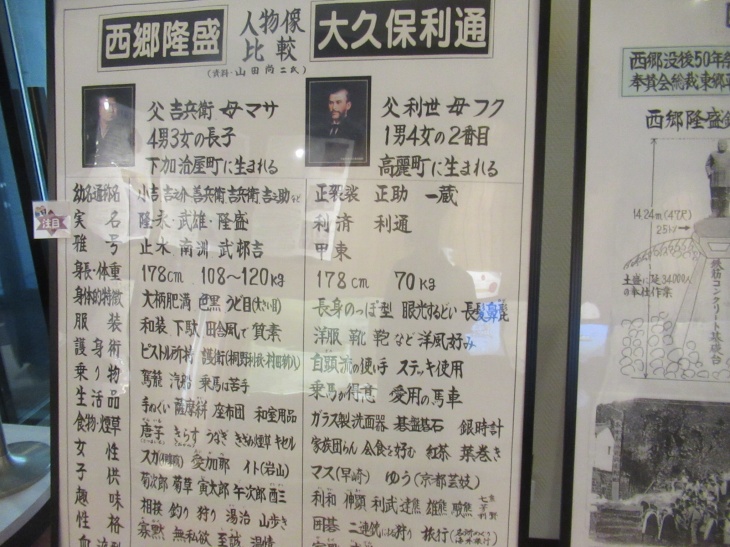 西郷隆盛 人物像比較 大久保利通
(資料・山田尚二氏)
父 吉兵衛 母マサ
4男3女の長子
下加治屋町に生まれる
父 利世 母フク
1男4女の2番目
高麗町に生まれる
幼名通称名 小吉 吉之介 善兵衛 吉兵衛 吉之助など 正袈裟 正助 一蔵
実名 隆永・武雄・隆盛 利済 利通
雅号 止水 南洲 武邨吉 甲東
身長・体重 178cm 108〜120kg 178cm 70kg
身体的特徴 大柄肥満 色黒 うど目(大きい目) 長身のっぽ型 眼光するどい
服装 和装 下駄 田舎風で質素 洋服 靴 鞄など洋風好み
護身術 ピストル所持 護衛 自顕流の使い手 ステッキ使用
乗り物 駕籠 汽船 乗馬は苦手 乗馬が得意 愛用の馬車
生活品 手ぬぐい 薩摩絣 座布団 和室用品 ガラス製洗面器 碁盤碁石 銀時計
食物・煙草 唐芋 きらす うなぎ きざみ煙草 キセル 家族団らん 会食を好む 紅茶 葉巻き
女性 スガ 愛加那 イト(岩山) マス(早崎) ゆう(京都芸妓)
子供 菊次郎 菊草 寅太郎 午次郎 酉三 利和 伸顕 利武 達熊 雄熊 駿熊
趣味 相撲 釣り 狩り 湯治 山歩き 囲碁 狩り 旅行
性格 寡黙 無私欲 至誠 温情
注目
西郷没後50年祭
奉賛会総裁東郷
西郷隆盛
14.24m(47尺)
25トン
鉄筋コンクリート基礎台
土盛に延34,000人